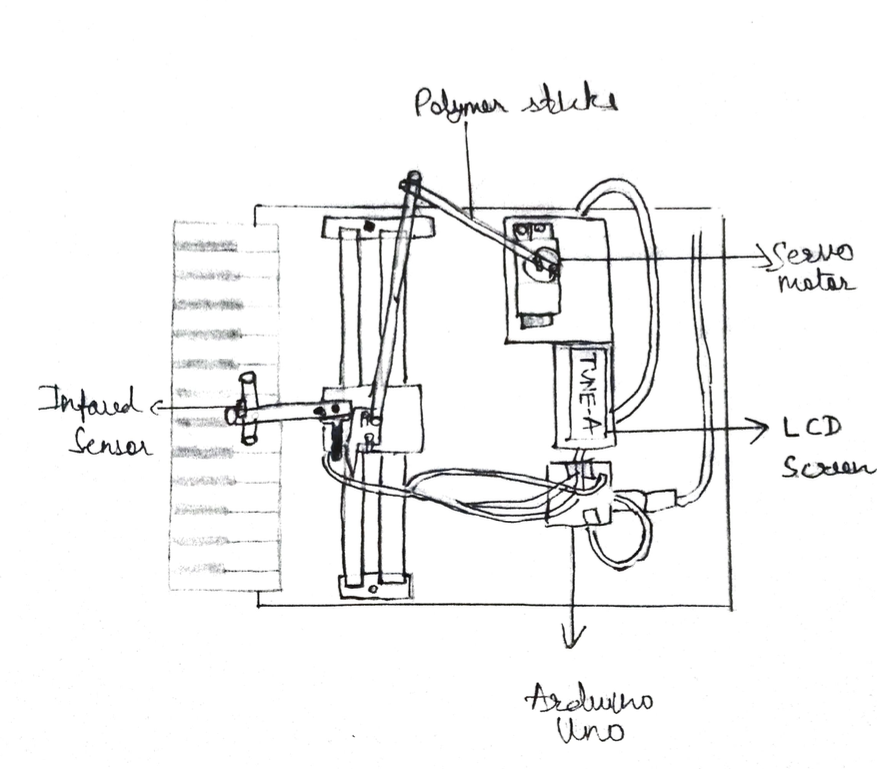 Polymer sticks
Servo
motor
TUNE-A
Infared
Sensor
LCD
Screen
Arduino
Uno